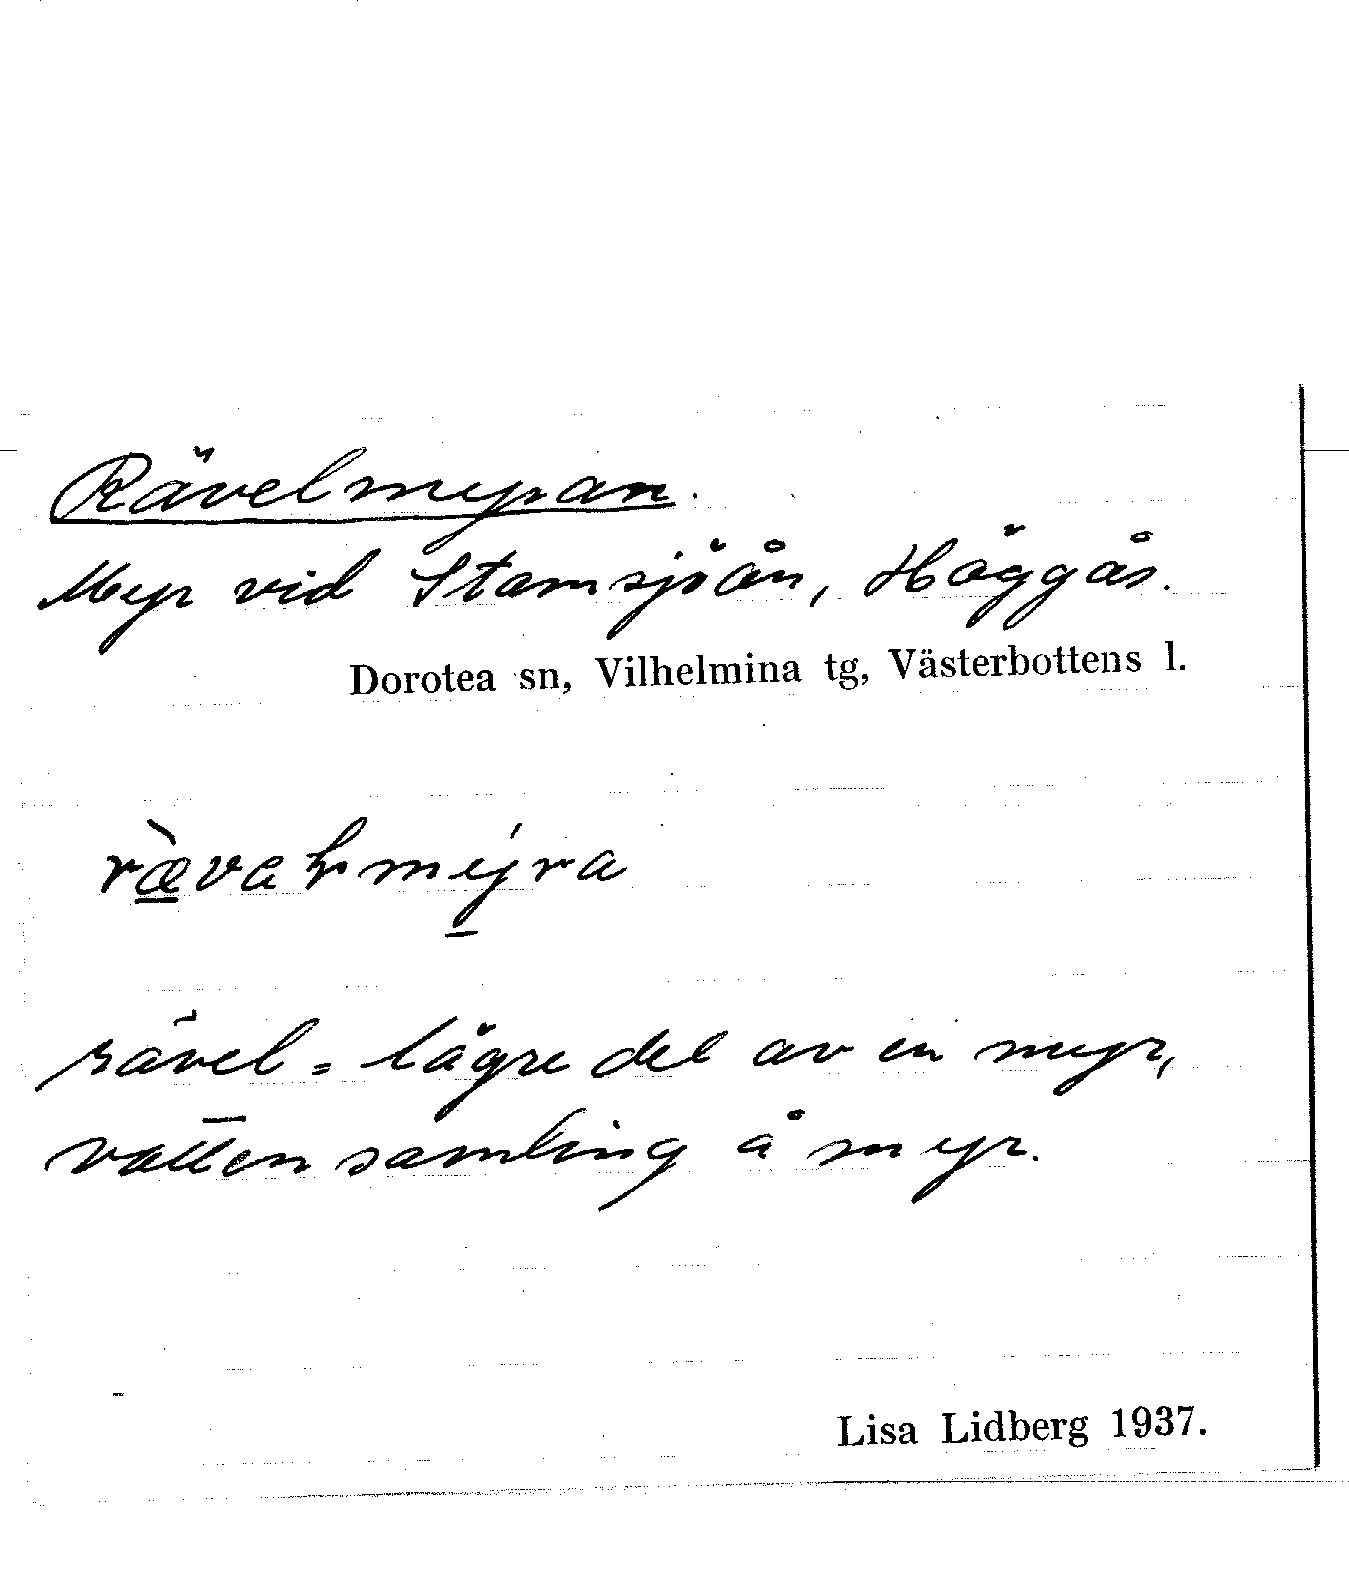 Rävelmyran.
Myr vid Stamsjöån, Höggås.
Dorotea sn, Vilhelmina tg, Västerbottens l.
ræ̀vaḷmýra
rävel = lägre del av en myr,
vattensamling å myr.
Lisa Lidberg 1937.